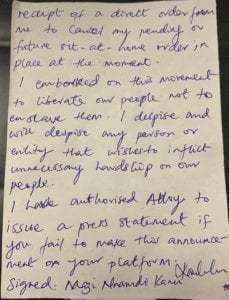 receipt of a direct order from
me to cancel any pending or
future sit-at-home order in
place at the moment.
I embarked on this movement
to liberate our people not to
enslave them. I despise and
will despise any person or
entity that wishes to inflict
unnecessary hardship on our
people.
I have authorised Attny to
issue a press statement if
you fail to make this announce-
ment on your platform.
Signed: Mazi Nnamdi Kanu